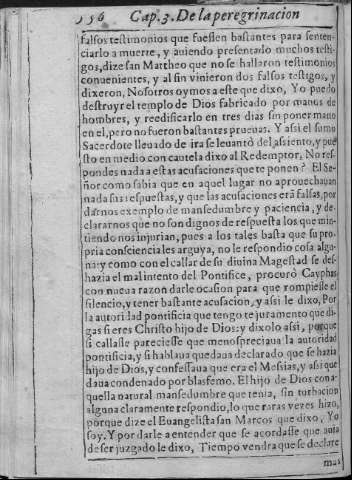 156 Cap. 3. De la peregrinacion
falsos testimonios que fuessen bastantes para senten-
ciarlo a muerte, y auiendo presentado muchos testi-
gos, dize san Mattheo que no se hallaron testimonios
conuenientes, y al sin vinieron dos falsos testigos, y
dixeron, Nosotros oymos a este que dixo, Yo puedo
destruyr el templo de Dios fabricado por manos de
hombres, y reedificarlo en tres dias sin poner mano
en el, pero no fueron bastantes prueuas. Y assi el sumo
Sacerdote lleuado de ira se leuantò del assiento, y pue
sto en medio con cautela dixo al Redemptor, No res-
pondes nada a estas acusaciones que te ponen? El Se-
ñor como sabia que en aquel lugar no aprouechauan
nada sus respuestas, y que las acusaciones erã falsas, por
darnos exemplo de mansedumbre y paciencia, y de-
clararnos que no son dignos de respuesta los que min-
tiendo nos injurian, pues a los tales basta que su pro-
pria consciencia les arguya, no le respondio cosa algu-
na: y como con el callar de su diuina Magestad se des-
hazia el mal intento del Pontifice, procurò Cayphas
con nueua razon darle ocasion para que rompiesse el
silencio, y tener bastante acusacion, y assi le dixo, Por
la autoridad pontificia que tengo te juramento que di-
gas si eres Christo hijo de Dios: y dixolo assi, porque
si callasse pareciesse que menospreciaua la autoridad
pontificia, y si hablaua quedaua declarado que se hazia
hijo de Dios, y confessaua que era el Mesias, y assi que
daua condenado por blasfemo. El hijo de Dios con a-
quella natural mansedumbre que tenia, sin turbacion
alguna claramente respondio, lo que raras vezes hizo,
porque dize el Euangelista san Marcos que dixo, Yo
soy. Y por darle a entender que se acordasse que auia
de ser juzgado le dixo, Tiempo vendra que se declare
mas